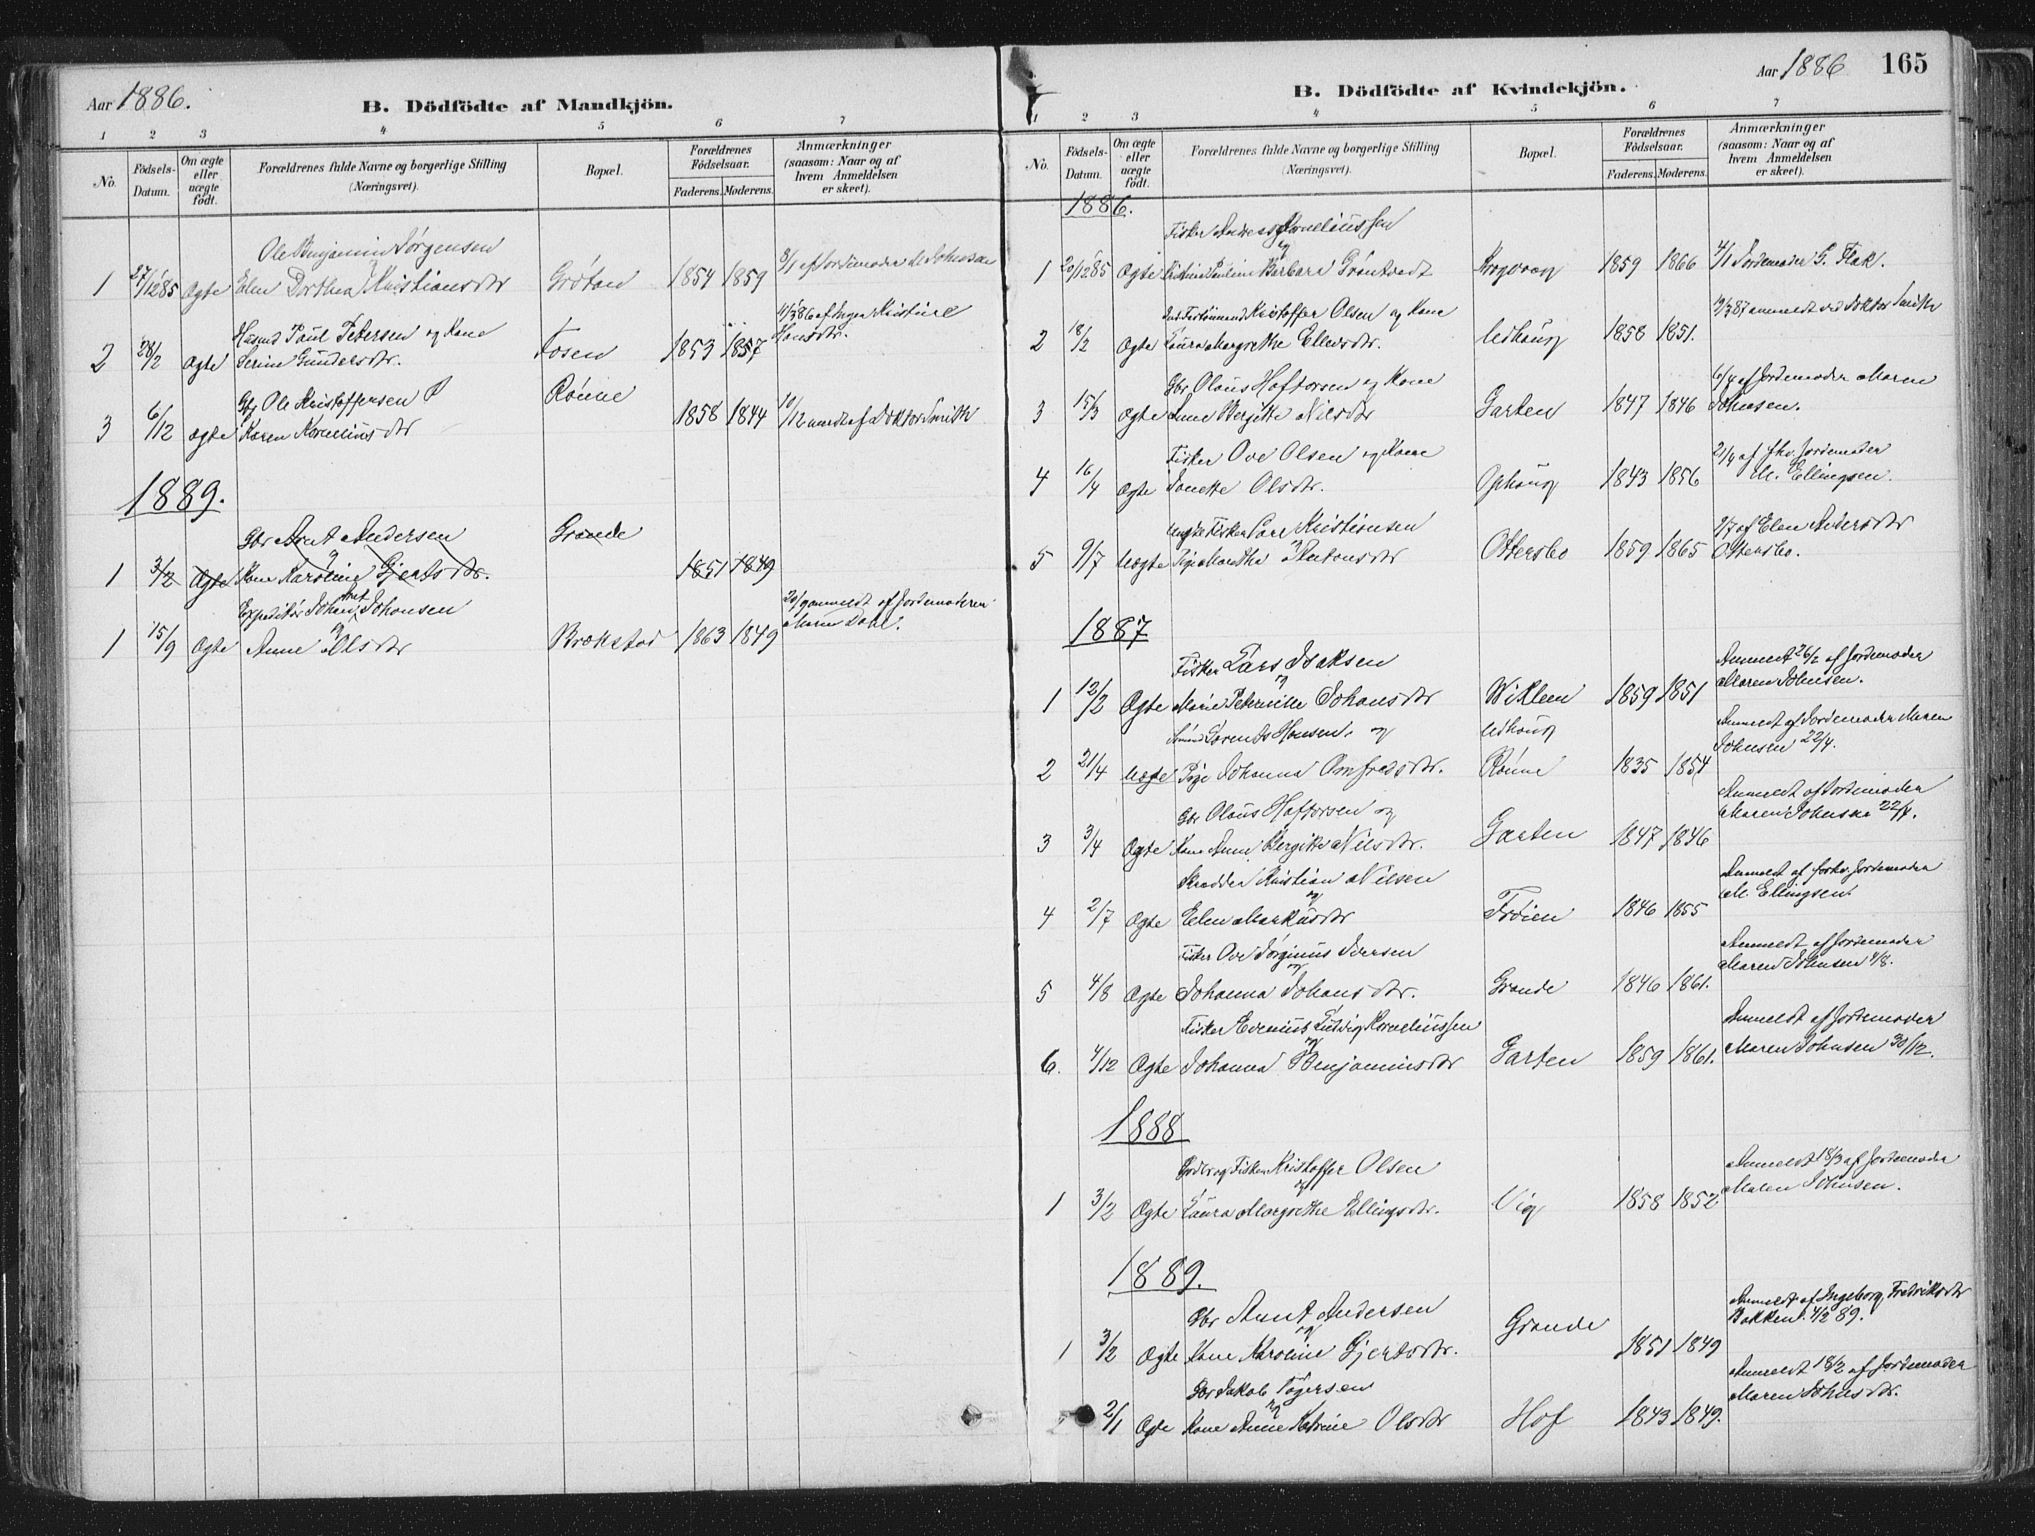 Aar 1886.
B. Dödfödte af Mandkjön.
1 2 3 4 5 6 7
No.
Födsels-Datum.
Om ægte eller uægte födt.
Forældrenes fulde Navne og borgerlige Stilling (Næringsvei).
Bopæl.
Forældrenes Födselsaar.
Faderens. Moderens.
Anmærkninger (saasom: Naar og af hvem Anmeldelsen er skeet).
Ole Benjamin Jørgensen
1 27/12 85 Ægte Elen Dorthea Kristiansdtr Grøtan 1854 1859 af Jordemoder M Johnsen
Husmd Paul Petersen og Kone
2 28/2 Ægte Serine Gundersdtr. Fosen 1853 1857 11/3 86 af Ingen Kristine Hansdtr.
Gbr Ole Kristoffersen
3 6/12 ægte Karen Korneliusdtr Rønne 1858 1844 10/12 anmdt af Doktor Smith
1889.
Gbr Arnt Andersen
og
1 3/2 Ægte Kone Karoline Gjertsdtr. Grande 1851 1849
Expeditør Johan Johansen
og
1 15/9 Ægte Anne Olsdtr Brækstad 1863 1849 20/9 anmeldt af Jordemoderen Maren Dahl.
Aar 1886 165
B. Dödfödte af Kvindekjön.
1 2 3 4 5 6 7
No.
Födsels-Datum.
Om ægte eller uægte födt.
Forældrenes fulde Navne og borgerlige Stilling (Næringsvei).
Bopæl.
Forældrenes Födselsaar.
Faderens. Moderens.
Anmærkninger (saasom: Naar og af hvem Anmeldelsen er skeet).
1886.
Fisker Andreas Korneliussen
og
1 20/12 85 Ægte Pauline Barbara Grøntvedt Krogvaag 1859 1866 4/1 Jordemoder G. Flak.
Kristoffer Olsen og Kone
2 18/2 Ægte Laura Margrethe Ellevsdtr. Uthaug 1858 1851. 19/3 87 anmeldt ved Doktor Smith
Gbr Olaus Haftorsen og Kone
3 15/3 Ægte Anne Bergitte Nilsdtr Garten 1847 1846 6/4 af Jordemoder Maren Johnsen.
Fisker Ove Olsen og Kone
4 16/4 Ægte Jonette Olsdtr. Ophaug 1843 1856 21/4 af fhv. Jordemoder M. Ellingsen.
Ungk Fisker Lars Kristiansen
og
5 9/7 Uægte Pige Maretha Antonsdtr Ottersbo 1859 1865 9/7 af Elen Andersdtr Ottersbo.
1887
Fisker Lars Isaksen
og
1 12/2 Ægte Marie Peternille Johansdtr Wiklem 1859 1851 Anmeldt 26/2 af Jordemoder Maren Johnsen.
Lorents Hansen. og Uthaug
2 21/4 Uægte Pige Johanna Arnfredsdtr. Rønne 1835 1854 Anmeldt af Jordemoder Maren Johnsen 22/4.
Gbr Olaus Haftorsen og
3 3/4 Ægte Kone Anne Bergitte Nilsdtr. Garten 1847 1846 Anmeldt af Jordemoder Maren Johnsen 22/4.
Skrædder Kristian Nilsen
og
4 2/7 Ægte Elen Markusdtr Frøien 1846 1855 Anmeldt af forhv. Jordemoder M. Ellingsen.
Fisker Ove Jørginus Iversen
og
5 4/8 Ægte Johanna Johansdtr. Grande 1846 1861. Anmeldt af Jordemoder Maren Johnsen 4/8.
Fisker Edenius Ludvig Korneliussen
og
6. 4/12 Ægte Johanna Benjaminsdtr Garten 1859 1861. Anmeldt af Jordemoder Maren Johnsen 30/12.
1888
Fisker Kristoffer Olsen
og
1 3/2 Ægte Laura Margrethe Ellingsdtr. Vig 1858 1852 Anmeldt 18/3 af Jordemoder Maren Johnsen.
1889.
Gbr Arnt Andersen
og
1 3/2 Ægte Kone Karoline Gjertsdtr. Grande 1851 1849 Anmeldt af Ingeborg Fredriksdtr Bakken 4/2 89.
Gbr Jakob Tøgersen
og
2/1 Ægte Kone Anne Katrine Olsdtr Hof 1843 1849. Anmeldt 18/2 af Jordemoder Maren Johnsdtr.